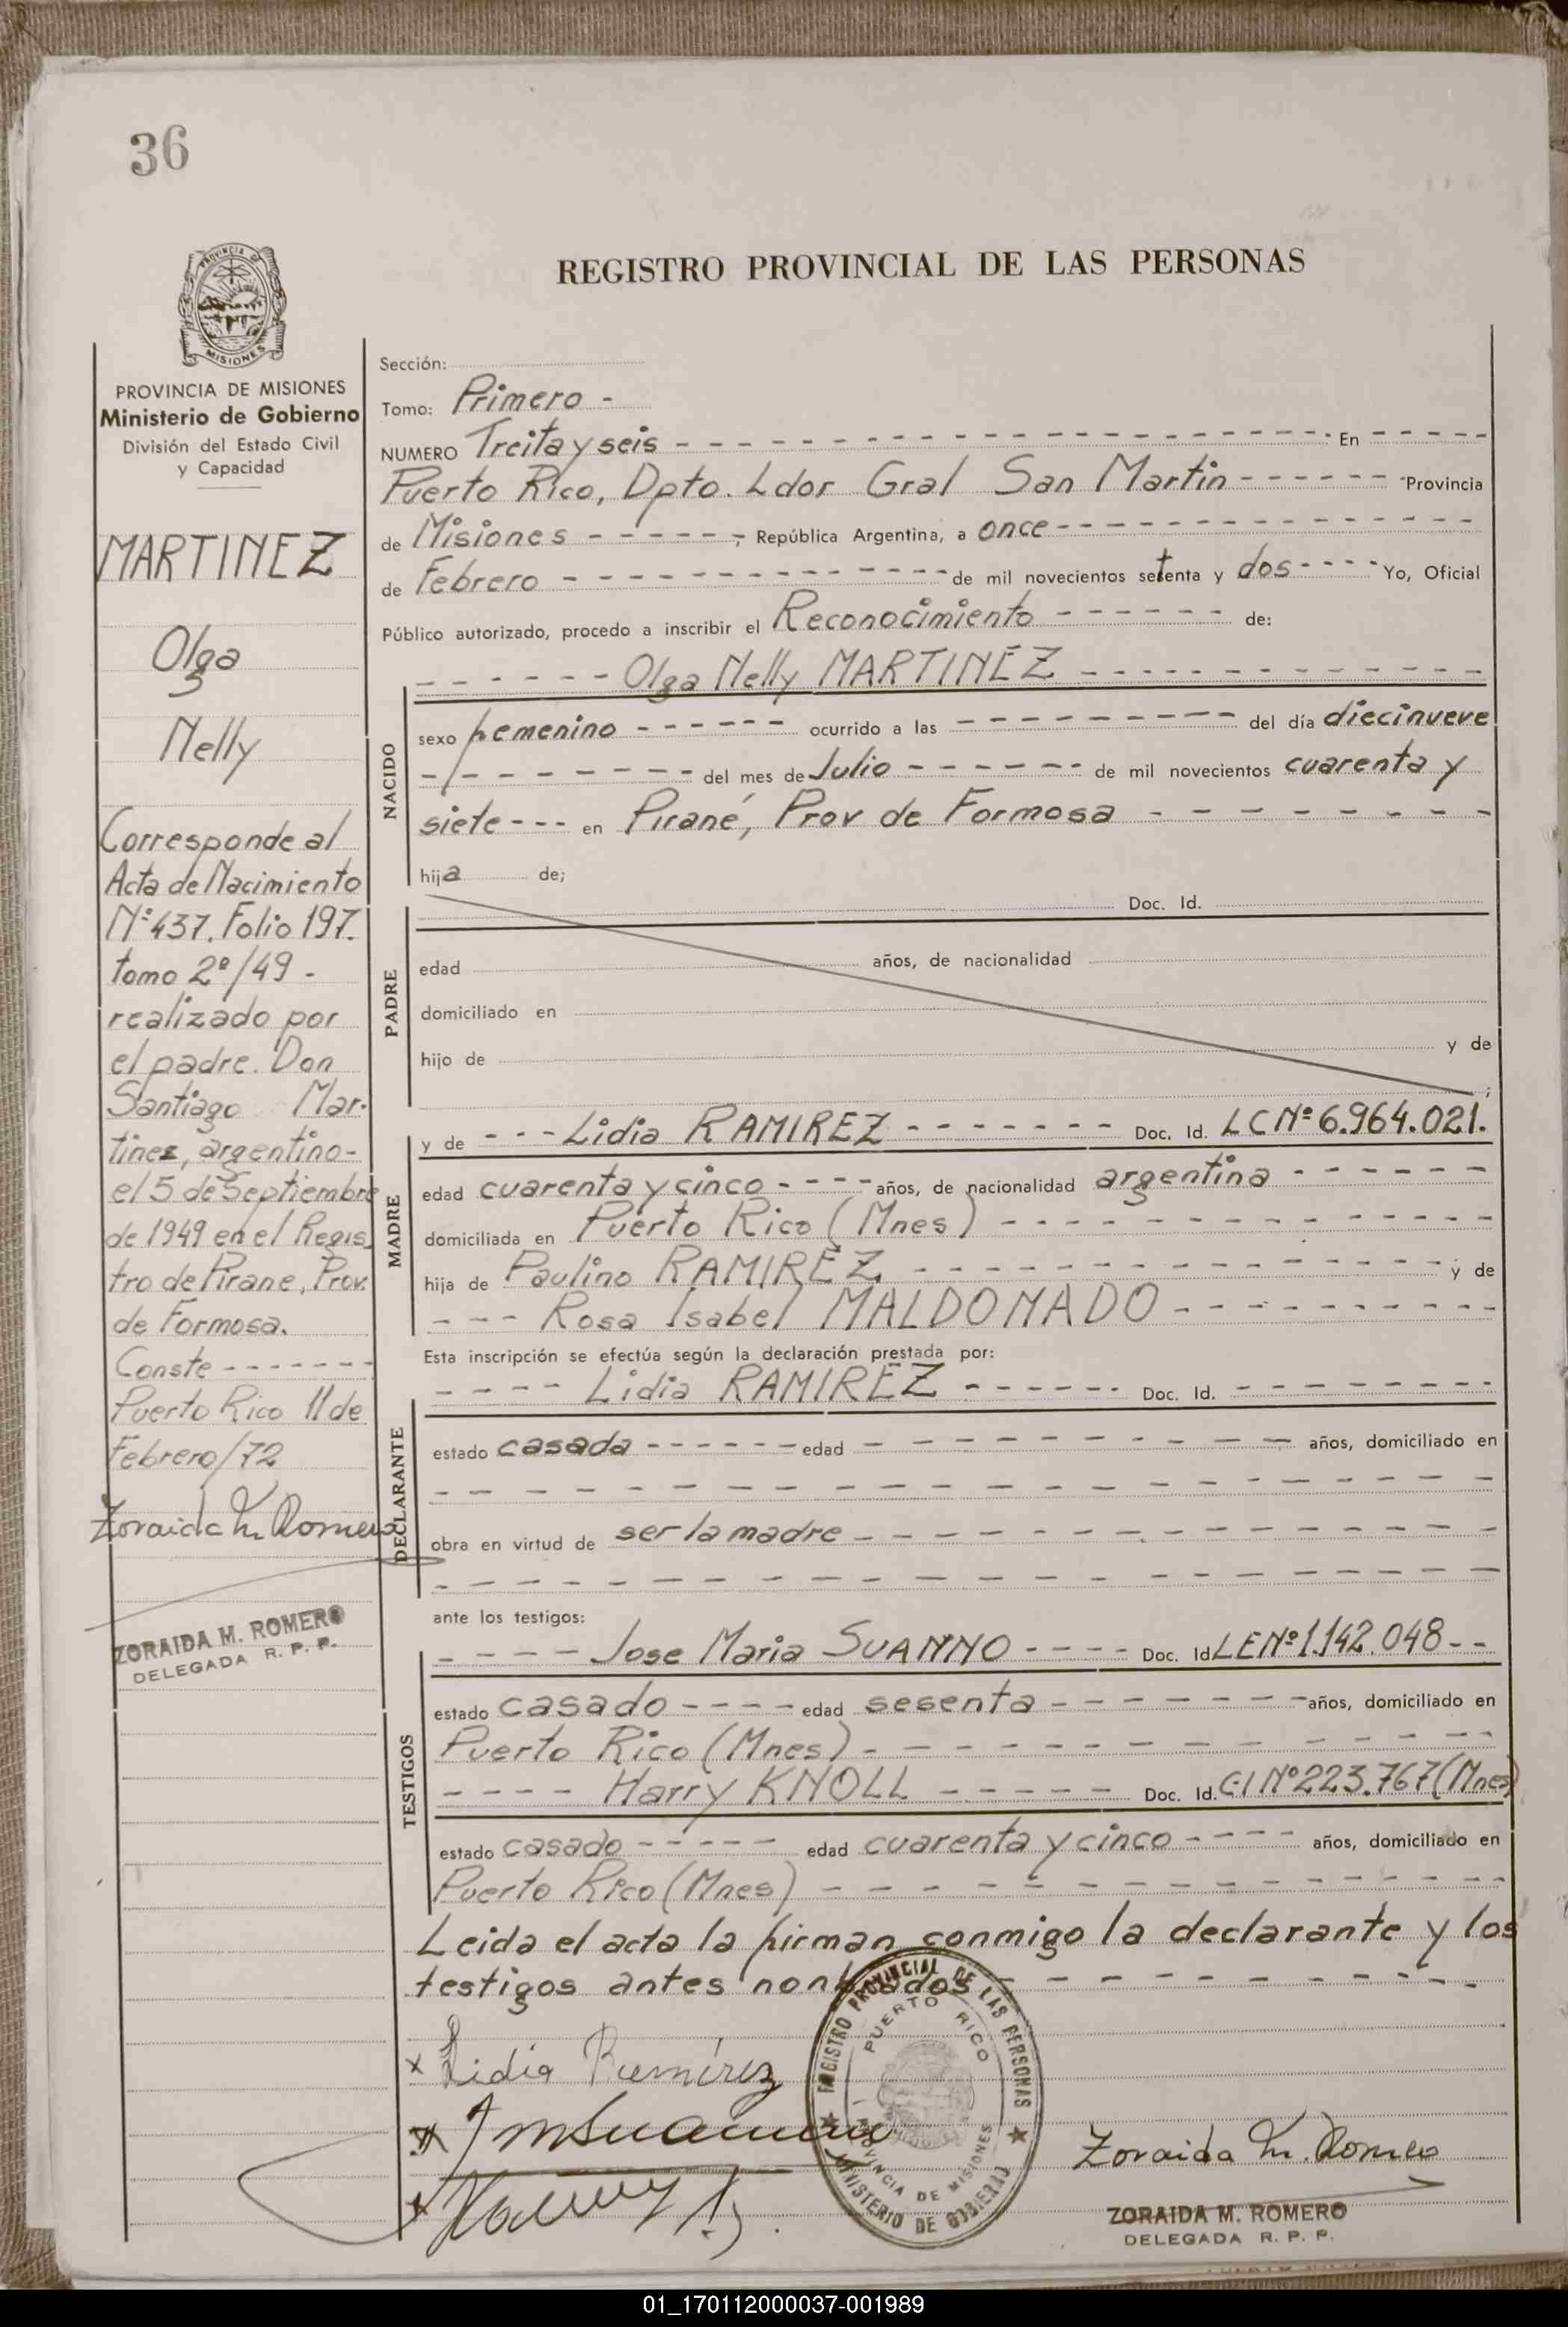 36
REGISTRO PROVINCIAL DE LAS PERSONAS
PROVINCIA DE
MISIONES
PROVINCIA DE MISIONES
Ministerio de Gobierno
División del Estado Civil
y Capacidad
MARTINEZ
Olga
Nelly
Corresponde al
Acta de Nacimiento
Nº 437. Folio 197.
tomo 2º/49 -
realizado por
el padre. Don
Santiago Mar-
tinez, argentino-
el 5 de Septiembre
de 1949 en el Regis
tro de Pirane, Prov.
de Formosa.
Conste - - - - - - -
Puerto Rico 11 de
Febrero/72
Zoraida M. Romero
ZORAIDA M. ROMERO
DELEGADA R. P. P.
Sección:
Tomo: Primero -
NUMERO Treita y seis - - - - En - - - -
Puerto Rico, Dpto. Ldor Gral San Martin - - - - - - Provincia
de Misiones - - - - - -, República Argentina, a once - - - -
de Febrero - - - - de mil novecientos setenta y dos - - - - Yo, Oficial
Público autorizado, procedo a inscribir el Reconocimiento - - - - - - de:
- - - - - - Olga Nelly MARTINEZ - - - -
NACIDO
sexo femenino - - - - - - ocurrido a las - - - - del día diecinueve
- - - - del mes de Julio - - - - - - de mil novecientos cuarenta y
siete - - - en Pirané, Prov de Formosa - - - -
hija de;
PADRE
Doc. Id.
edad años, de nacionalidad
domiciliado en
hijo de y de
;
MADRE
y de - - - Lidia RAMIREZ - - - - - - - Doc. Id. LC Nº 6.964.021.
edad cuarenta y cinco - - - - años, de nacionalidad argentina - - - - - -
domiciliada en Puerto Rico (Mnes) - - - -
hija de Paulino RAMIREZ - - - - y de
- - - Rosa Isabel MALDONADO - - - -
Esta inscripción se efectúa según la declaración prestada por:
DECLARANTE
- - - - Lidia RAMIREZ - - - - - - Doc. Id. - - - -
estado casada - - - - - - edad - - - - años, domiciliado en
- - - -
obra en virtud de ser la madre - - - -
- - - -
ante los testigos:
TESTIGOS
- - - - Jose Maria SUANNO - - - - Doc. Id LE Nº 1.142.048 - -
estado casado - - - - edad sesenta - - - - años, domiciliado en
Puerto Rico (Mnes) - - - -
- - - - Harry KNOLL - - - - - Doc. Id. C.I Nº 223.767 (Mnes)
estado casado - - - - - edad cuarenta y cinco - - - - años, domiciliado en
Puerto Rico (Mnes) - - - -
Leida el acta la firman conmigo la declarante y los
testigos antes nonbrados - - - -
x Lidia Ramírez
REGISTRO PROVINCIAL DE LAS PERSONAS
PUERTO RICO
PROVINCIA DE MISIONES
MINISTERIO DE GOBIERNO
Zoraida M. Romero
ZORAIDA M. ROMERO
DELEGADA R. P. P.
01_170112000037-001989